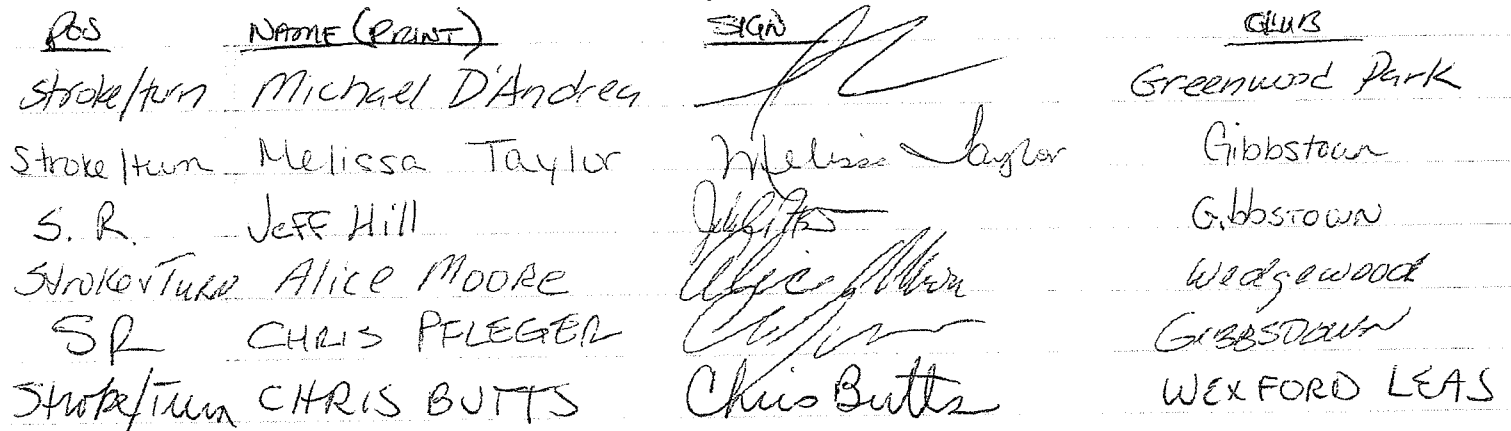 POS NAME (PRINT) SIGN CLUB
Stroke/turn Michael D'Andrea Greenwood Park
Stroke/turn Melissa Taylor Melissa Taylor Gibbstown
S.R. JEFF Hill Gibbstown
Stroke+Turn Alice MOORE Alice Moore Wedgewood
SR CHRIS PFLEGER GIBBSTOWN
Stroke/Turn CHRIS BUTTS Chris Butts WEXFORD LEAS